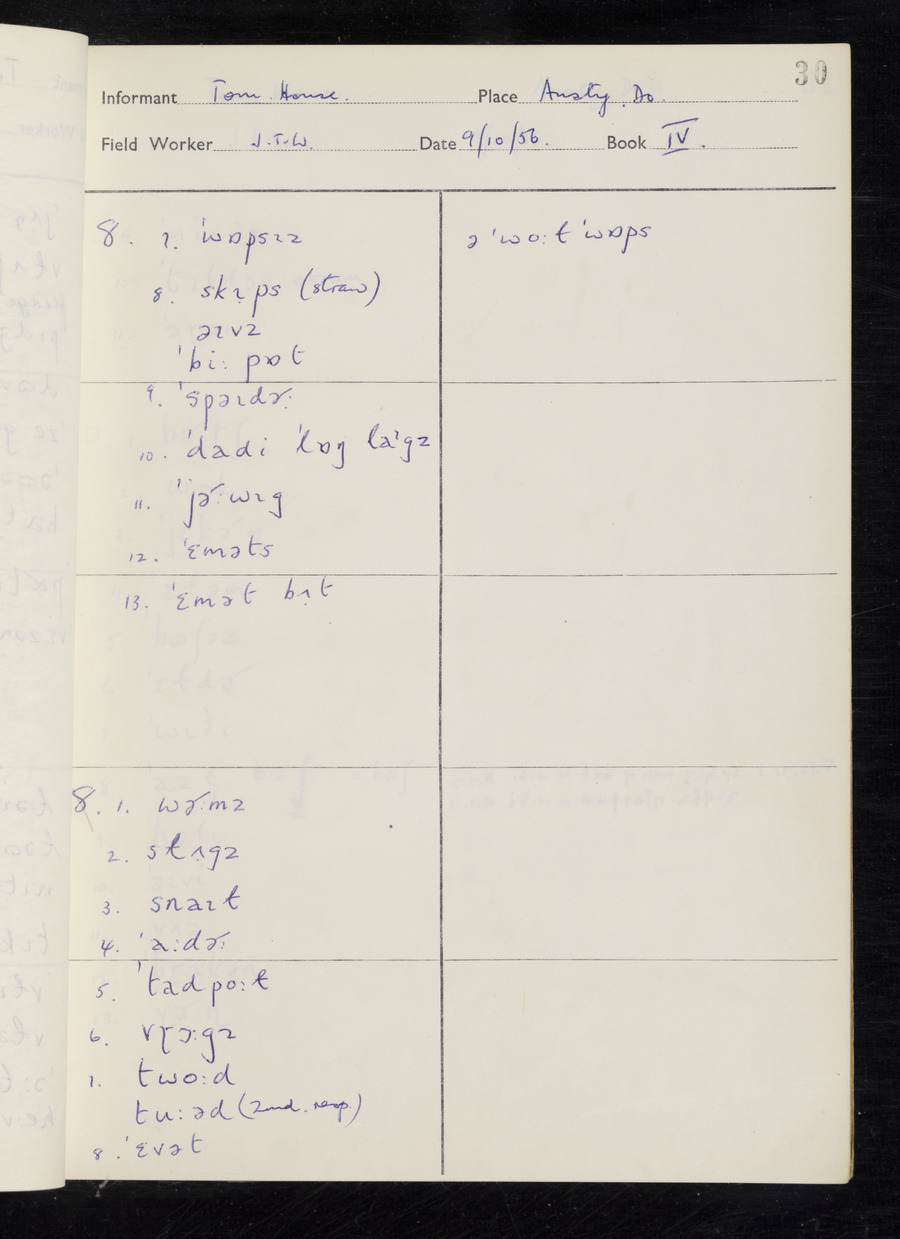 30
Informant Tom House. Place Ansty, Do.
Field Worker J.T.W. Date 9/10/56. Book IV.
8. 7. ˈwɒpsɪz ə ˈwo:t ˈwɒps
8. skɪps (straw)
əɪvz
ˈbi: pɒt
9. ˈspəɪdɚ:
10. ˈdadi ˈlɒŋ laˑgz
11. ˈjɚ:wɪg
12. ˈɛməts
13. ˈɛmət bʌt
8. 1. wɚ:mz
2. stʌgz
3. snaɪt
4. ˈa:dɚ:
5. ˈtadpo:t
6. vɽɔ:gz
7. two:d
tu:əd (2nd. resp.)
8. ˈɛvət